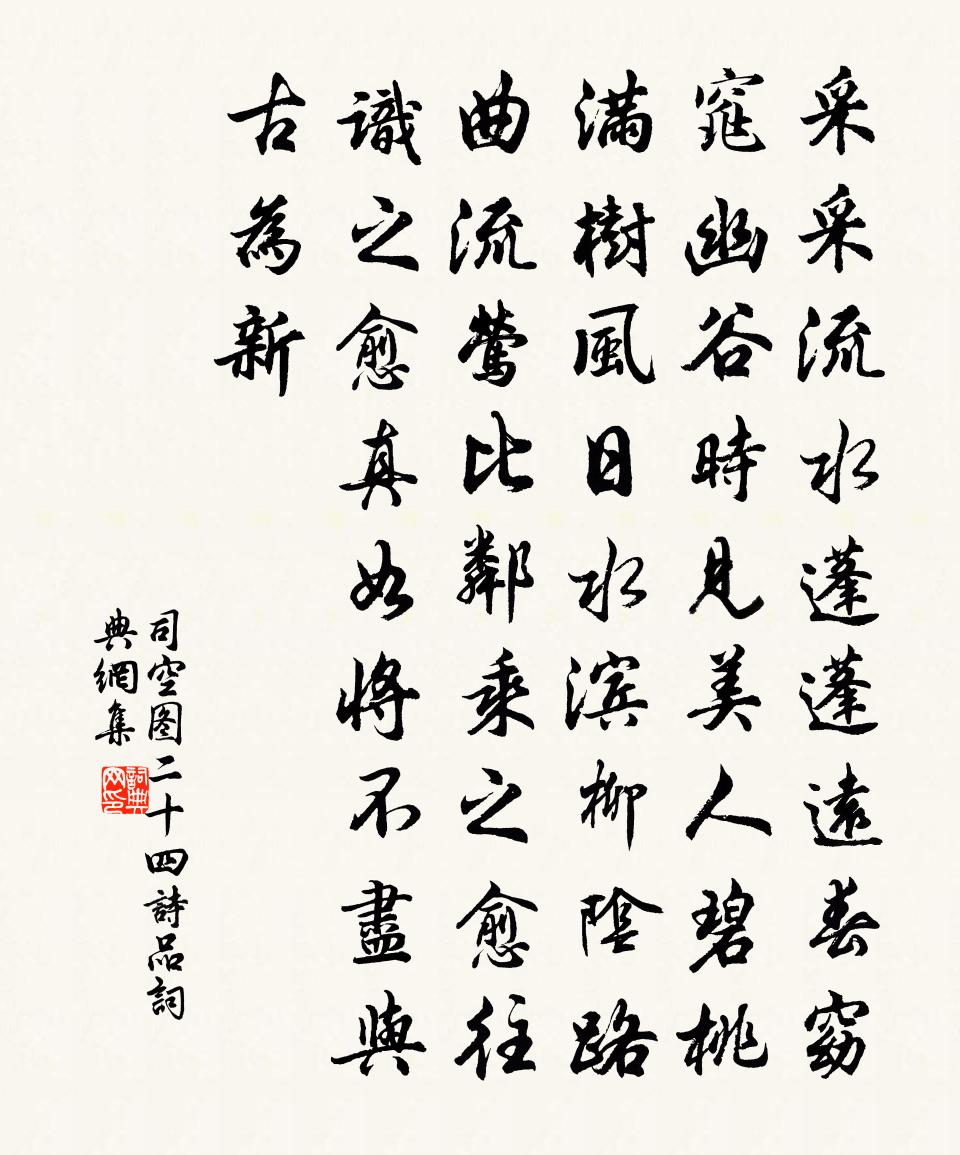 采采流水蓬蓬遠春窈
窕幽谷時見美人碧桃
滿樹風日水滨柳陰路
曲流鶯比鄰乘之愈往
識之愈真如將不盡與
古為新
司空图二十四詩品詞
典網集
詞典
网印